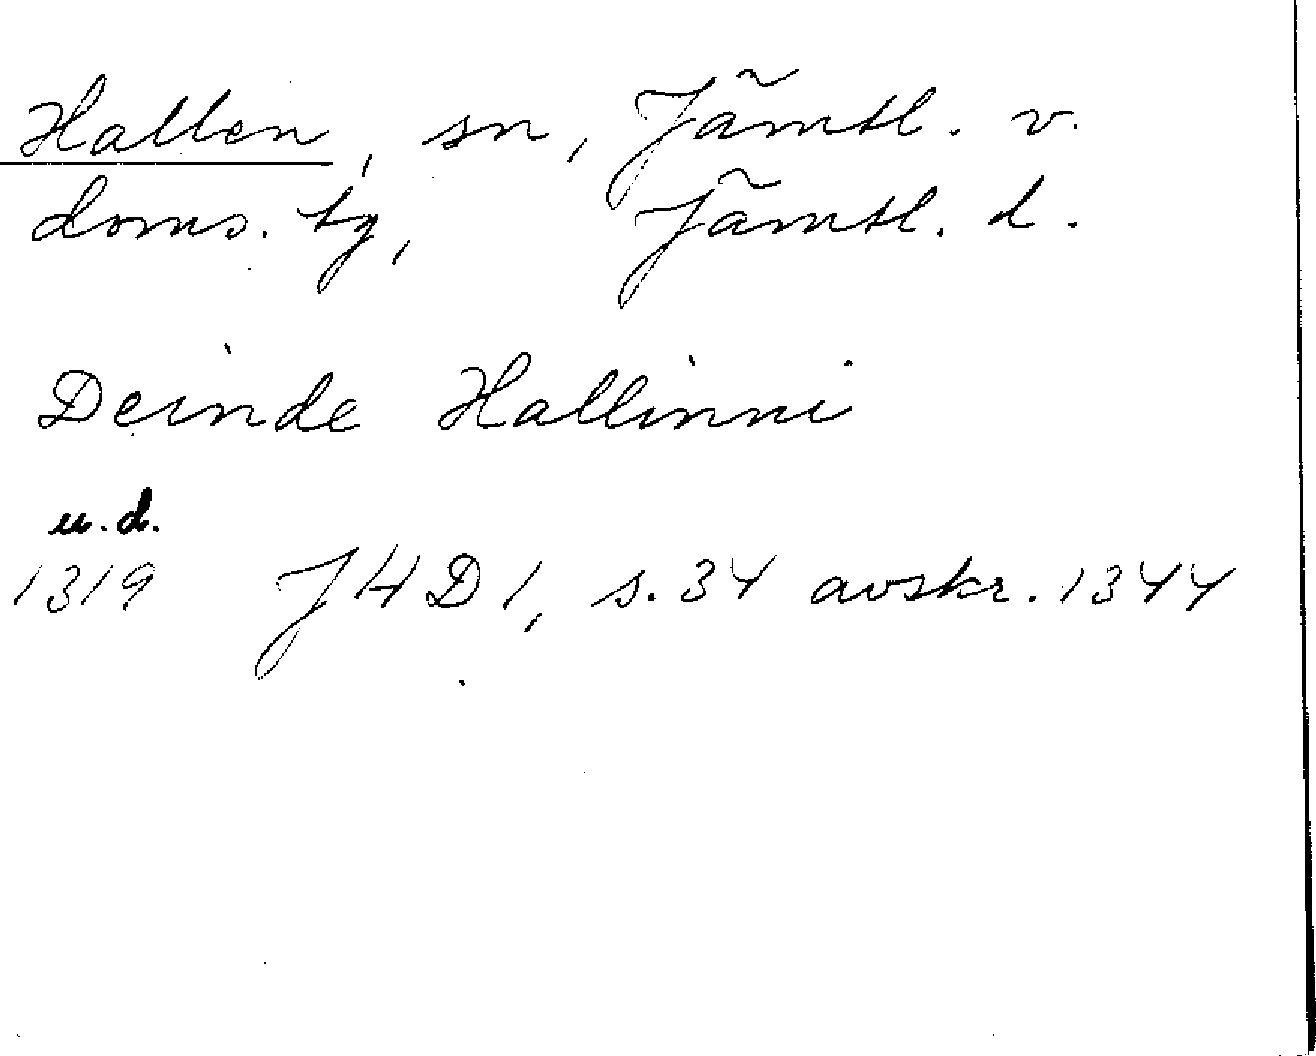 Hallen, sn, Jämtl. v.
doms. tg, Jämtl. l.
Deinde Hallinni
u.d.
1319 J4D1, s. 34 avskr. 1344